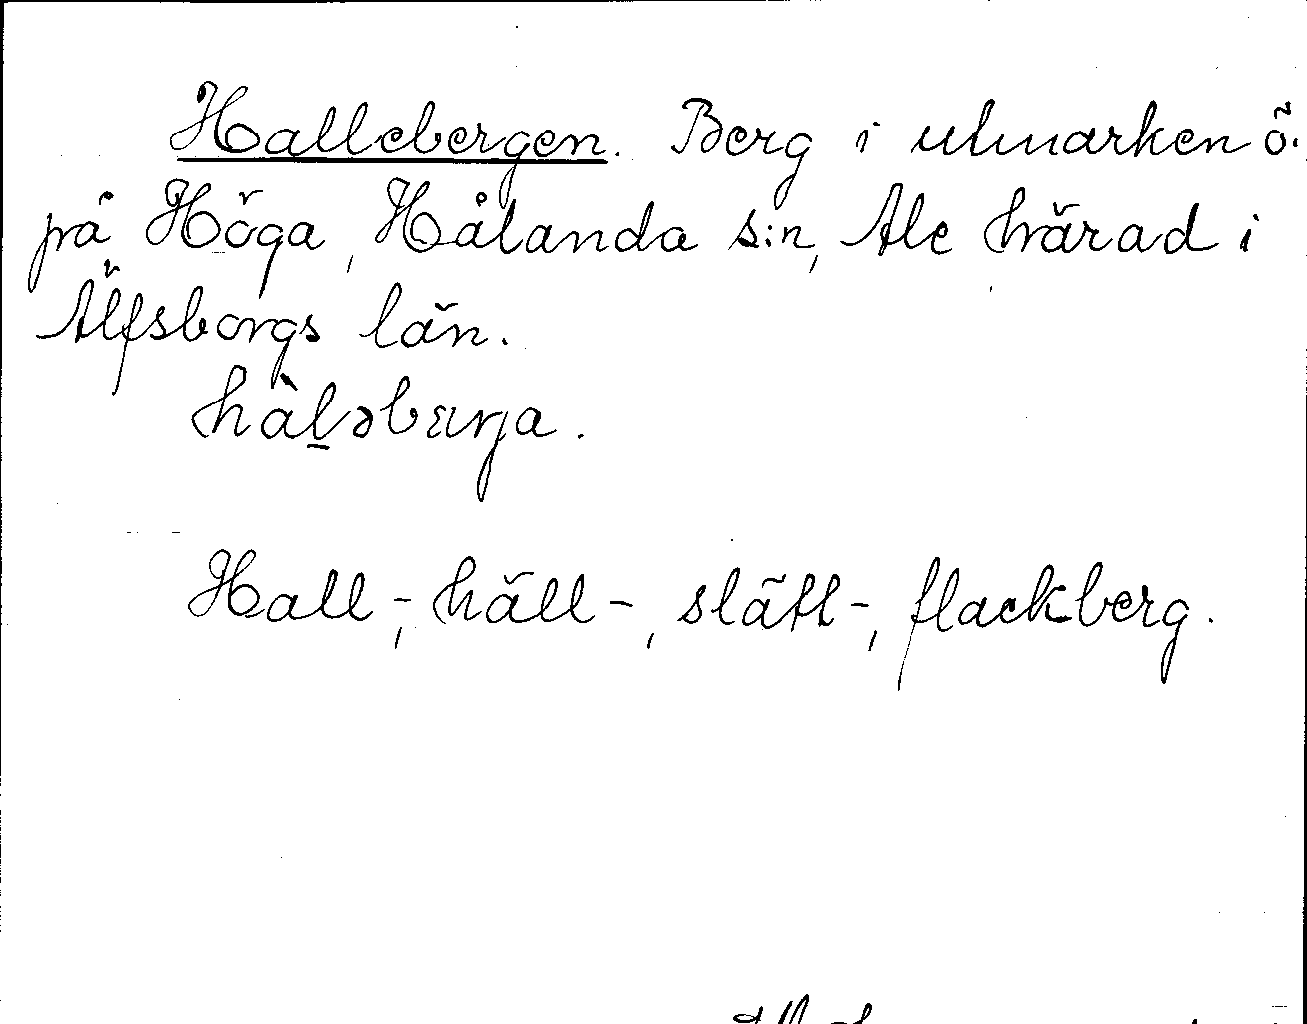 Hallebergen. Berg i utmarken ö.
på Höga, Hålanda s:n, Ale härad i
Älfsborgs län.
hàl̠əbærja.
Hall-, häll-, slätt-, flackberg.